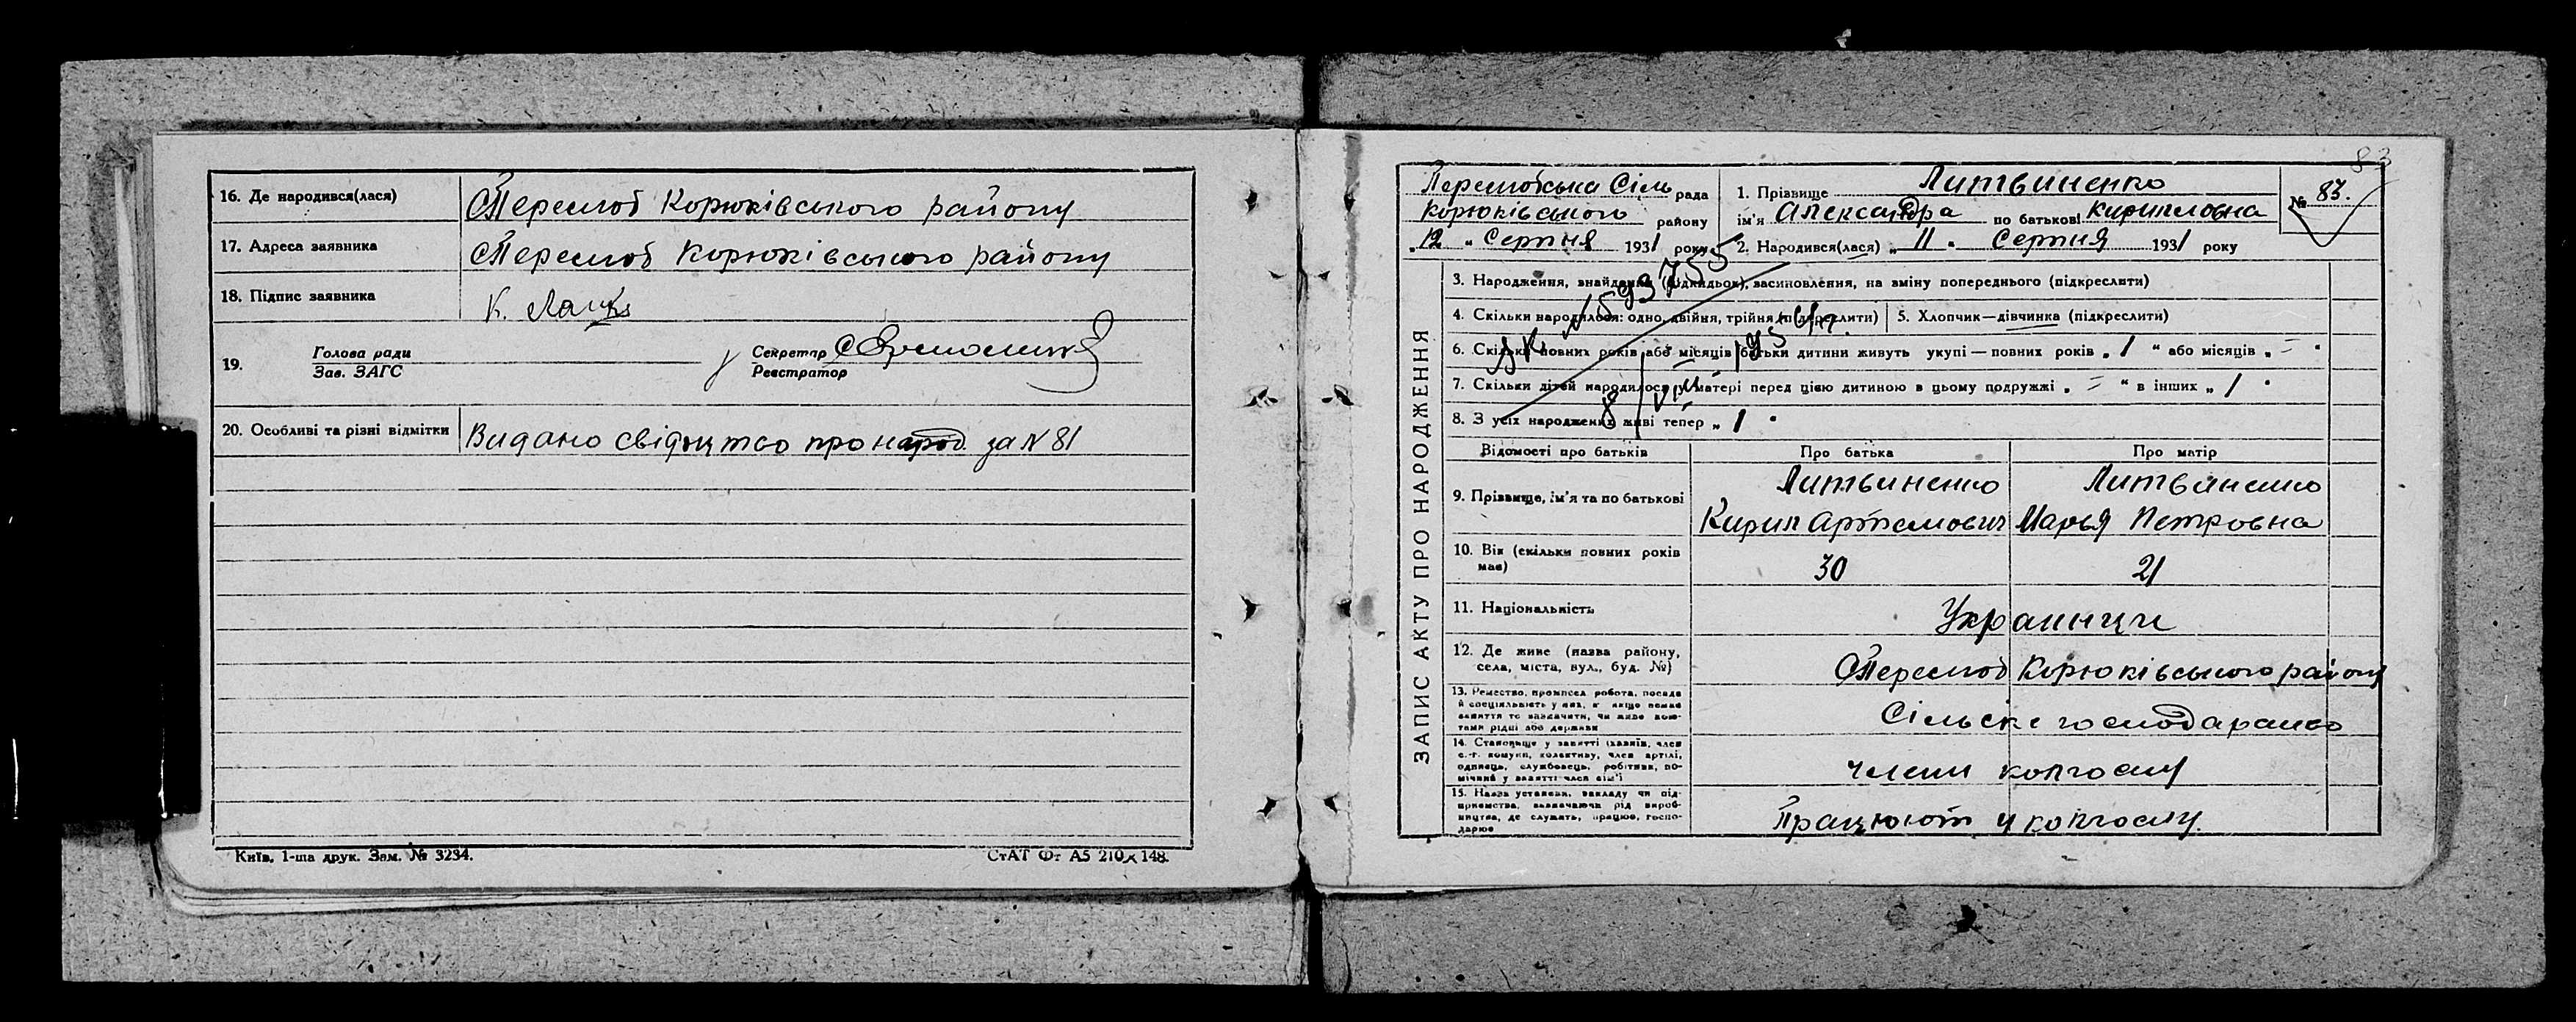 16. Де народився(лася) С Перелюб Корюківського району
17. Адреса заявника С Перелюб Корюківського району
18. Підпис заявника К.
19. Голова ради
Зав. ЗАГС
Секретар
Реєстратор
20. Особливі та різні відмітки Видано свідоцтво про народ. за N 81
Київ, 1-ша друк. Зам. № 3234.
СтАТ Фт А5 210×148.
83
Перелюбська Сіль рада
Корюківського району
„12 „ Серпня 1931 року
1. Прізвище Литвиненко
ім'я Александра по батькові Кирилловна
№ 83.
2. Народився(лася) „ 11 „ Серпня 1931 року
ЗАПИС АКТУ ПРО НАРОДЖЕННЯ
3. Народження, знайдення (підкидьок), засиновлення, на зміну попереднього (підкреслити)
4. Скільки народилося: одно, двійня, трійня (підкреслити)
5. Хлопчик—дівчинка (підкреслити)
6. Скільки повних років або місяців батьки дитини живуть укупі — повних років „ 1 “ або місяців „ – “
7. Скільки дітей народилося у матері перед цією дитиною в цьому подружжі „ – “ в інших „ 1 “
8. З усіх народжених живі тепер „ 1 “
Відомості про батьків
Про батька
Про матір
9. Прізвище, ім'я та по батькові
Литвиненко
Кирил Артамович
Литвиненко
Марья Петровна
10. Вік (скільки повних років має)
30
21
11. Національність
Украинци
12. Де живе (назва району,
села, міста, вул., буд. №)
С Перелюб Корюківського району
13. Ремество, промисел, робота, посада
й спеціяльність у них, а якщо немає
заняття то зазначити, чи живе кош-
тами рідні або держави
Сільске господарство
14. Становище у занятті (хазяїн, член
с.-г. комуни, колективу, член артілі,
одинець, службовець, робітник, по-
мічний у занятті член сім'ї
члени колгоспу
15. Назва установи, закладу чи під-
приємства, зазначаючи рід вироб-
ництва, де служить, працює, госпо-
дарює
Працюют у колгоспу.